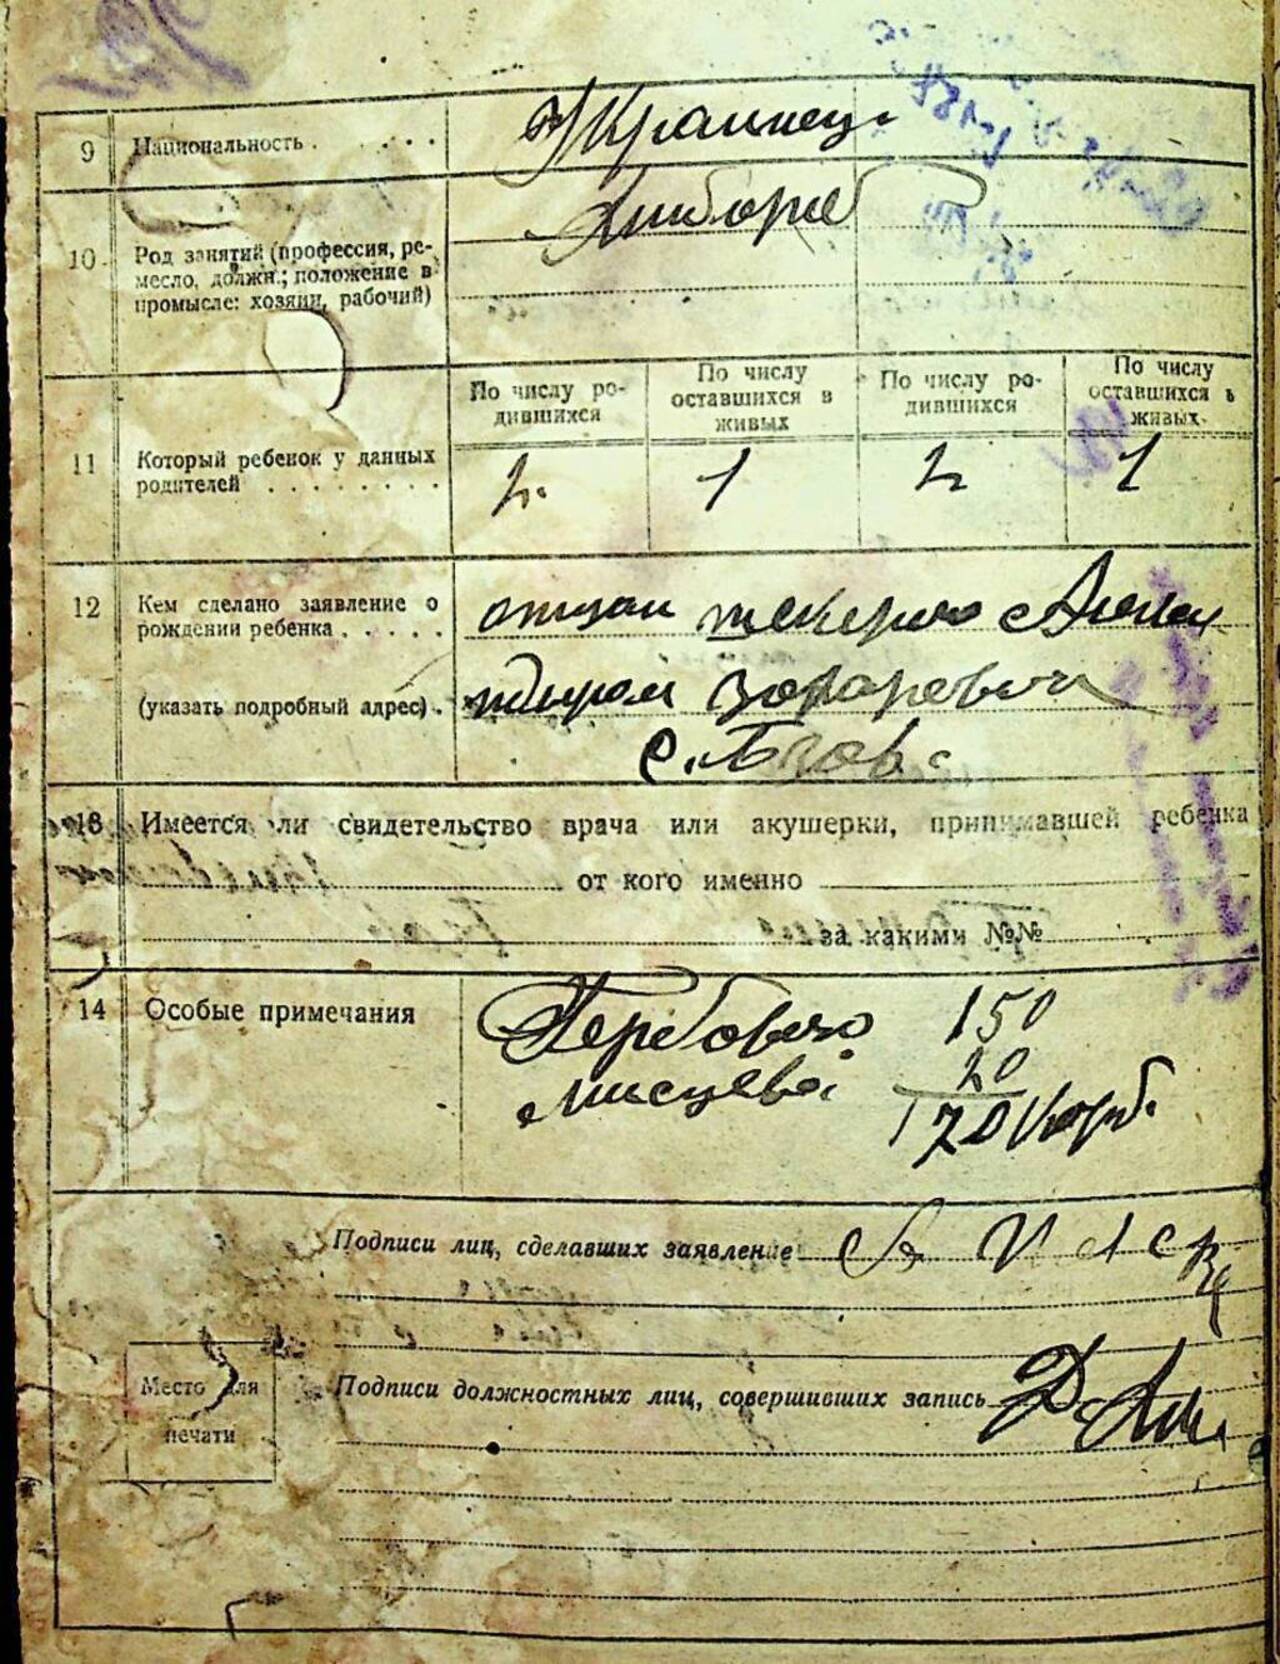 9 Национальность . . . . . Украинец.
10. Род занятий (профессия, ре-
месло, должн.; положение в
промысле: хозяин, рабочий)
Хлибороб
По числу ро-
дившихся
По числу
оставшихся в
живых
По числу ро-
дившихся
По числу
оставшихся в
живых
11 Который ребенок у данных
родителей . . . . . . . .
2. 1 2 1
12 Кем сделано заявление о
рождении ребенка . . . . .
(указать подробный адрес) .
отцом
Захаровичем
с. Бзов.
13 Имеется ли свидетельство врача или акушерки, принимавшей ребенка
от кого именно
за какими №№
14 Особые примечания
Гербового 150
мисцевой 20
170 карб.
Подписи лиц, сделавших заявление
Место для
печати
Подписи должностных лиц, совершивших запись